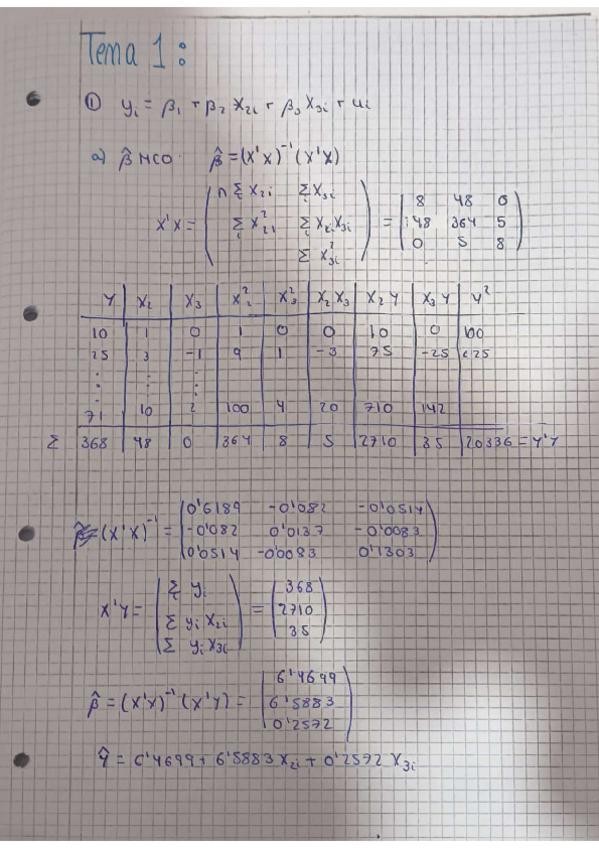 Tema 1:
① yi = β1 + β2 X2i + β3 X3i + ui
a) β̂ MCO. β̂ = (X'X)⁻¹ (X'X)
X'X = ( n Σ X2i Σ X3i
Σ X²2i Σ X2i X3i
Σ X²3i ) = ( 8 48 0
48 364 5
0 5 8 )
Y X2 X3 X²2 X²3 X2 X3 X2 Y X3 Y Y²
10 1 0 1 0 0 10 0 100
25 3 -1 9 1 -3 75 -25 625
⋮ ⋮ ⋮
71 10 2 100 4 20 710 142
Σ 368 48 0 364 8 5 2710 35 20336 = Y'Y
(X'X)⁻¹ = ( 0'6189 -0'082 -0'0514
-0'082 0'0137 -0'0083
0'0514 -0'0083 0'1303 )
X'Y = ( Σ yi
Σ yi X2i
Σ yi X3i ) = ( 368
2710
35 )
β̂ = (X'X)⁻¹ (X'Y) = ( 6'4699
6'5883
0'2572 )
Ŷ = 6'4699 + 6'5883 X2i + 0'2572 X3i